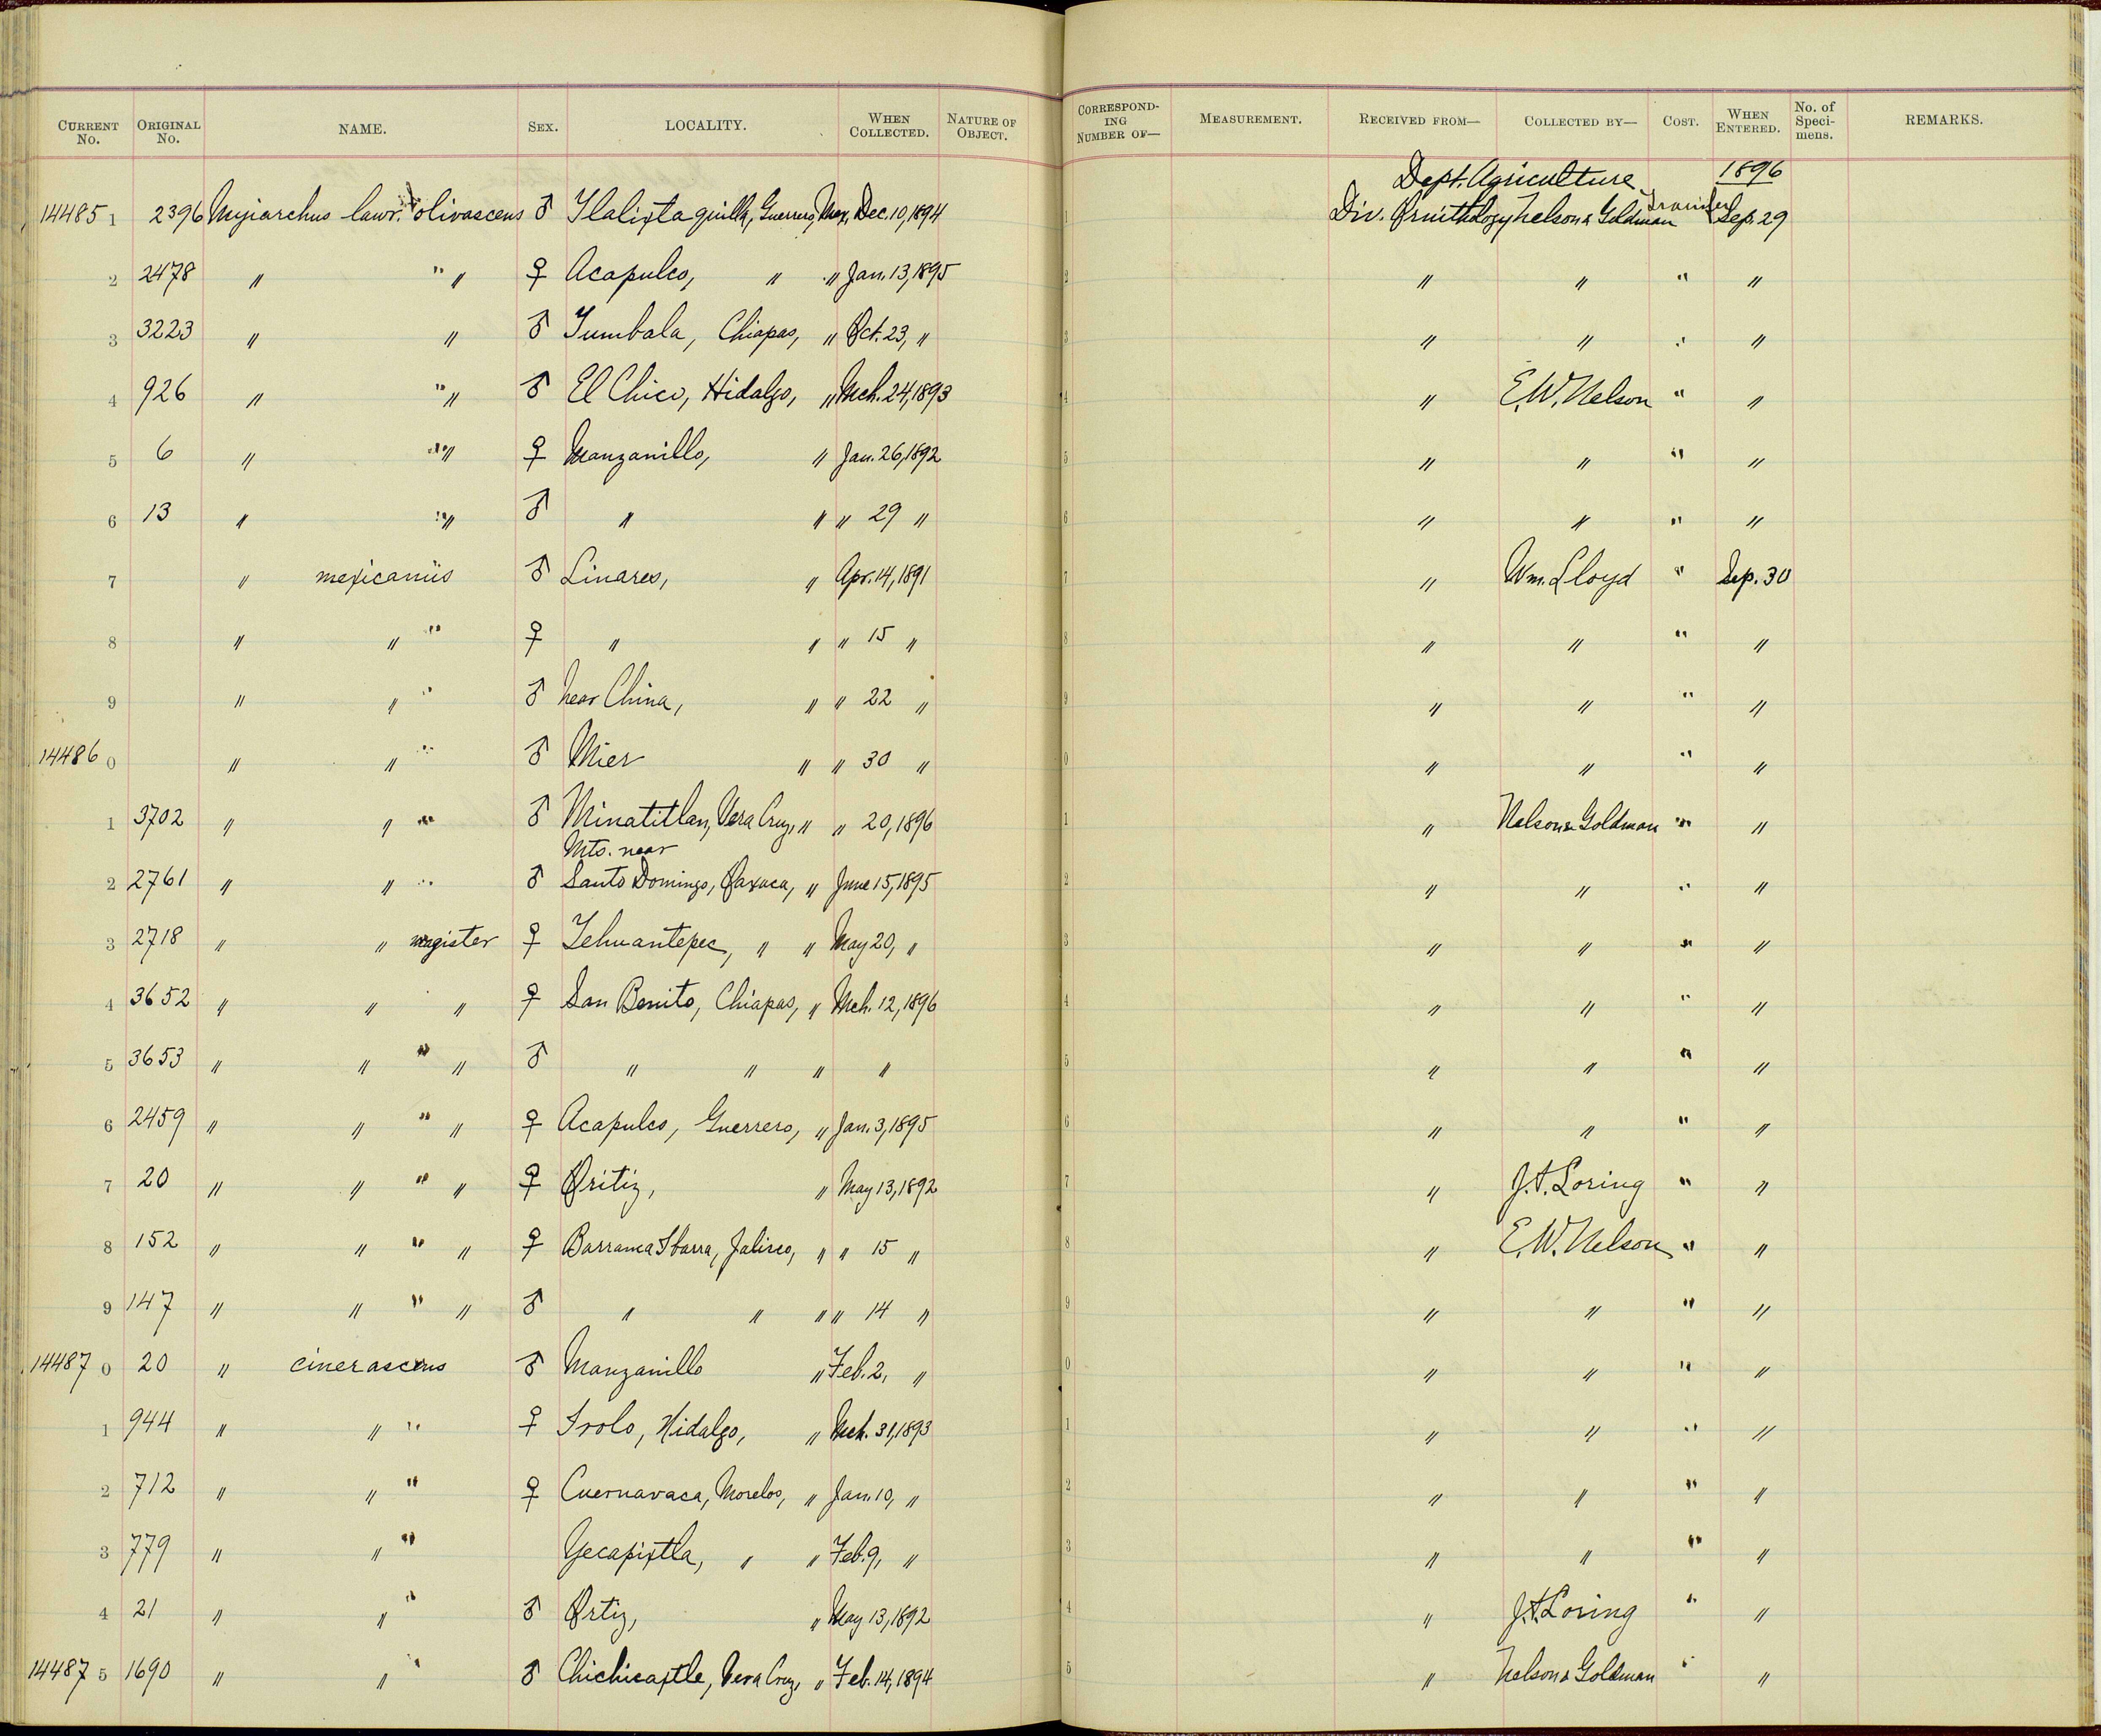 CURRENT No. ORIGINAL No. NAME. SEX. LOCALITY. WHEN COLLECTED. NATURE OF OBJECT. CORRESPONDING NUMBER OF— MEASUREMENT. RECEIVED FROM— COLLECTED BY— COST. WHEN ENTERED. No. of Specimens. REMARKS.
Dept. Agriculture 1896
144851 2396 Myiarchus lawr. olivascens ♂ Tlalixtaquilla, Guerrero, Mex. Dec. 10, 1894 1 Div. Ornithology Nelson & Goldman Transfer Sep. 29
2 2478 " " " ♀ Acapulco, " " Jan. 13, 1895 2 " " " "
3 3223 " " ♂ Tumbala, Chiapas, " Oct. 23, " 3 " " " "
4 926 " " " ♂ El Chico, Hidalgo, " Mch. 24, 1893 4 " E. W. Nelson " "
5 6 " " " ♀ Manzanillo, " Jan. 26, 1892 5 " " " "
6 13 " " " ♂ " " " 29 " 6 " " " "
7 " mexicanus ♂ Linares, " Apr. 14, 1891 7 " Wm. Lloyd " Sep. 30
8 " " " ♀ " " " 15 " 8 " " " "
9 " " " ♂ near China, " " 22 " 9 " " " "
144860 " " " ♂ Mier " " 30 " 0 " " " "
1 3702 " " " ♂ Minatitlan, Vera Cruz, " " 20, 1896 1 " Nelson & Goldman " "
Mts. near
2 2761 " " " ♂ Santo Domingo, Oaxaca, " June 15, 1895 2 " " " "
3 2718 " " magister ♀ Tehuantepec, " " May 20, " 3 " " " "
4 3652 " " " ♀ San Benito, Chiapas, " Mch. 12, 1896 4 " " " "
5 3653 " " " " ♂ " " " " 5 " " " "
6 2459 " " " " ♀ Acapulco, Guerrero, " Jan. 3, 1895 6 " " " "
7 20 " " " " ♀ Oritiz, " May 13, 1892 7 " J. A. Loring " "
8 152 " " " " ♀ Barranca Ibarra, Jalisco, " " 15 " 8 " E. W. Nelson " "
9 147 " " " " ♂ " " " " 14 " 9 " " " "
144870 20 " cinerascens ♂ Manzanillo " Feb. 2, " 0 " " " "
1 944 " " " ♀ Irolo, Hidalgo, " Mch. 31, 1893 1 " " " "
2 712 " " " ♀ Cuernavaca, Morelos, " Jan. 10, " 2 " " " "
3 779 " " " Yecapixtla, " " Feb. 9, " 3 " " " "
4 21 " " " ♂ Ortiz, " May 13, 1892 4 " J. A. Loring " "
144875 1690 " " " ♂ Chichicaxtle, Vera Cruz, " Feb. 14, 1894 5 " Nelson & Goldman " "